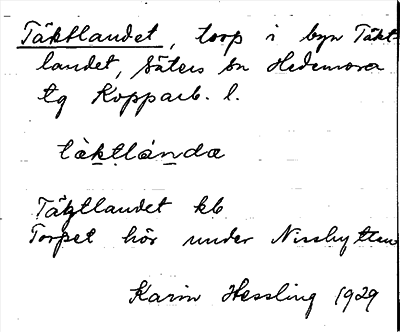 Täktlandet, torp i byn Täkt-
landet, Säters sn Hedemora
tg Kopparb. l.
tàktlánda
Täktlandet kb
Torpet hör under Nisshyttan
Karin Hessling 1929